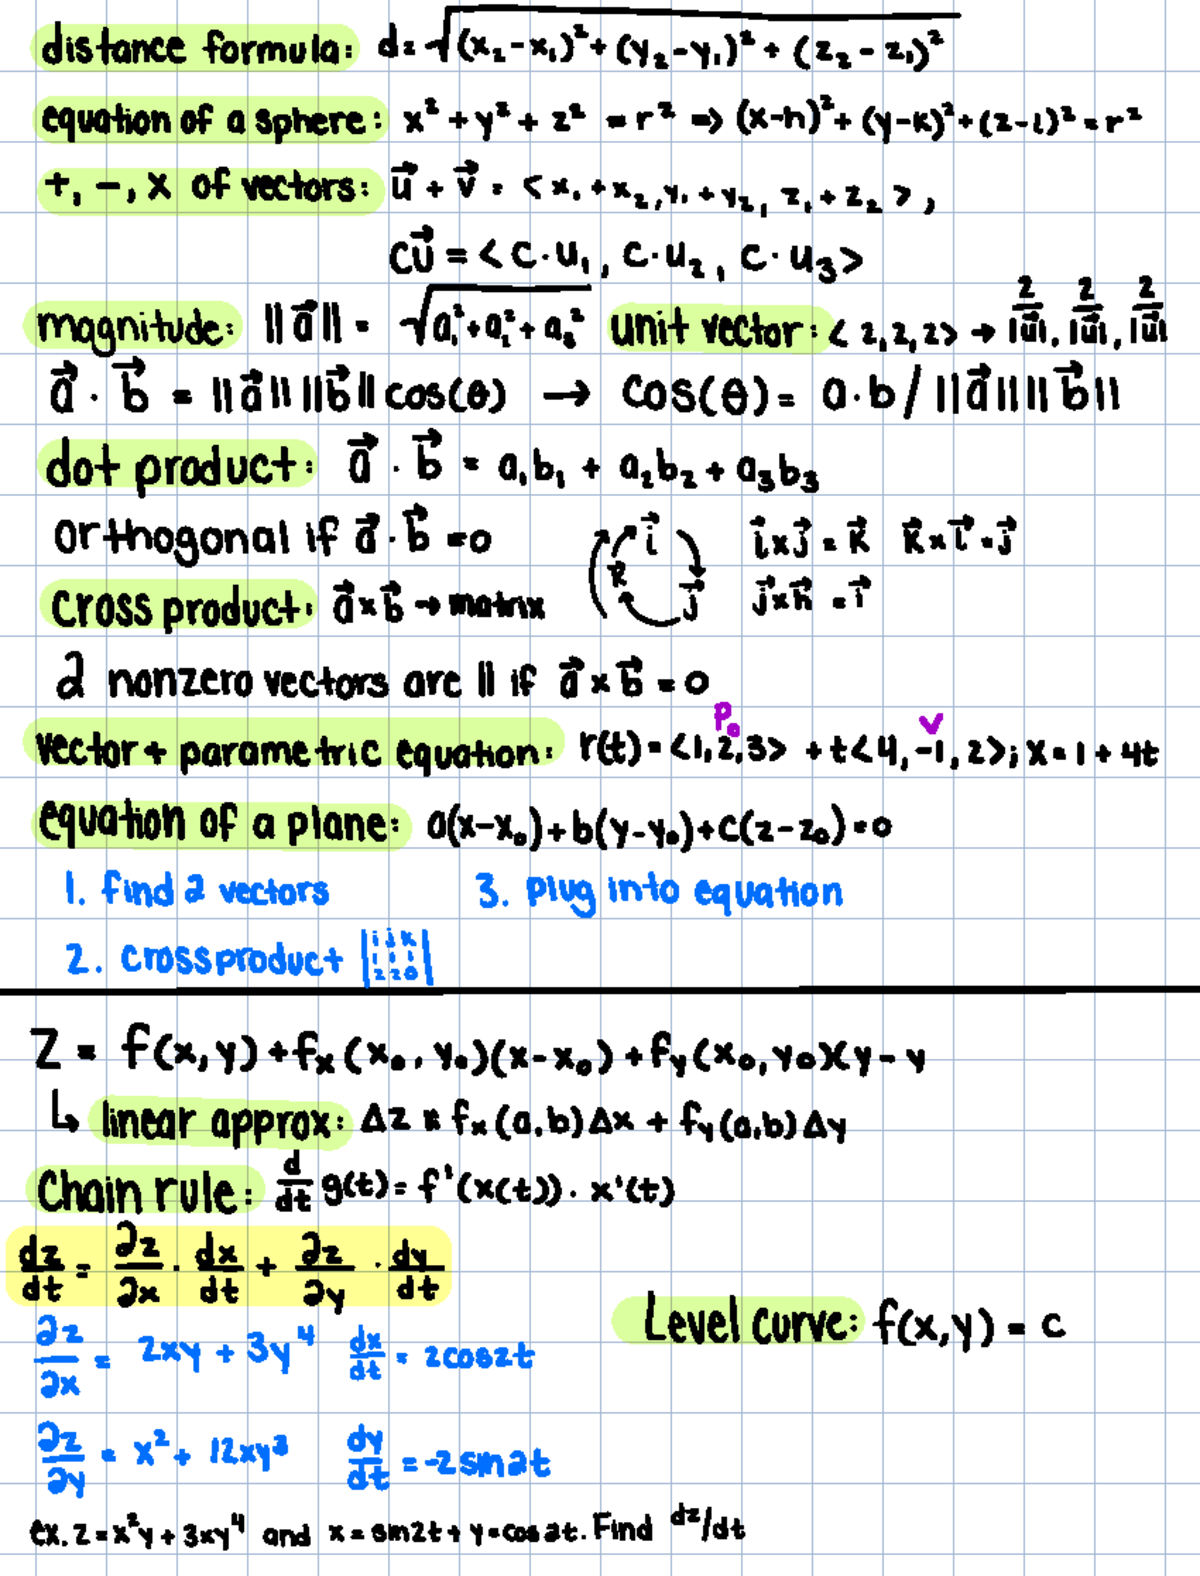 distance formula: d = √(x₂-x₁)² + (y₂-y₁)² + (z₂-z₁)²
equation of a sphere: x² + y² + z² = r² => (x-h)² + (y-k)² + (z-l)² = r²
+, -, x of vectors: u⃗ + v⃗ = <x₁+x₂, y₁+y₂, z₁+z₂>,
cu⃗ = <c·u₁, c·u₂, c·u₃>
magnitude: ||a⃗|| = √a₁²+a₂²+a₃² unit vector: <2,2,2> → 2/|u⃗|, 2/|u⃗|, 2/|u⃗|
a⃗ · b⃗ = ||a⃗|| ||b⃗|| cos(θ) → cos(θ) = a·b / ||a⃗|| || b⃗||
dot product: a⃗ · b⃗ = a₁b₁ + a₂b₂ + a₃b₃
orthogonal if a⃗ · b⃗ = 0 i⃗ j⃗ k i⃗xj⃗ = k⃗ k⃗xi⃗ = j⃗
cross product: a⃗xb⃗ → matrix j⃗xk⃗ = i⃗
2 nonzero vectors are || if a⃗ x b⃗ = 0
P₀ v
vector + parametric equation: r(t) = <1,2,3> + t<4,-1,2>; x = 1 + 4t
equation of a plane: a(x-x₀)+b(y-y₀)+c(z-z₀)=0
1. find 2 vectors 3. plug into equation
2. cross product |i j k|
|1 1 1|
|2 2 0|
z = f(x,y) + fₓ(x₀,y₀)(x-x₀) + fᵧ(x₀,y₀)(y-y
↳ linear approx: Δz ≈ fₓ(a,b)Δx + fᵧ(a,b)Δy
Chain rule: d/dt g(t) = f'(x(t)) · x'(t)
dz/dt = ∂z/∂x · dx/dt + ∂z/∂y · dy/dt
Level curve: f(x,y) = c
∂z/∂x = 2xy + 3y⁴ dx/dt = 2cos2t
∂z/∂y = x² + 12xy³ dy/dt = -2sin2t
ex. z = x²y + 3xy⁴ and x = sin2t + y = cos2t. Find dz/dt